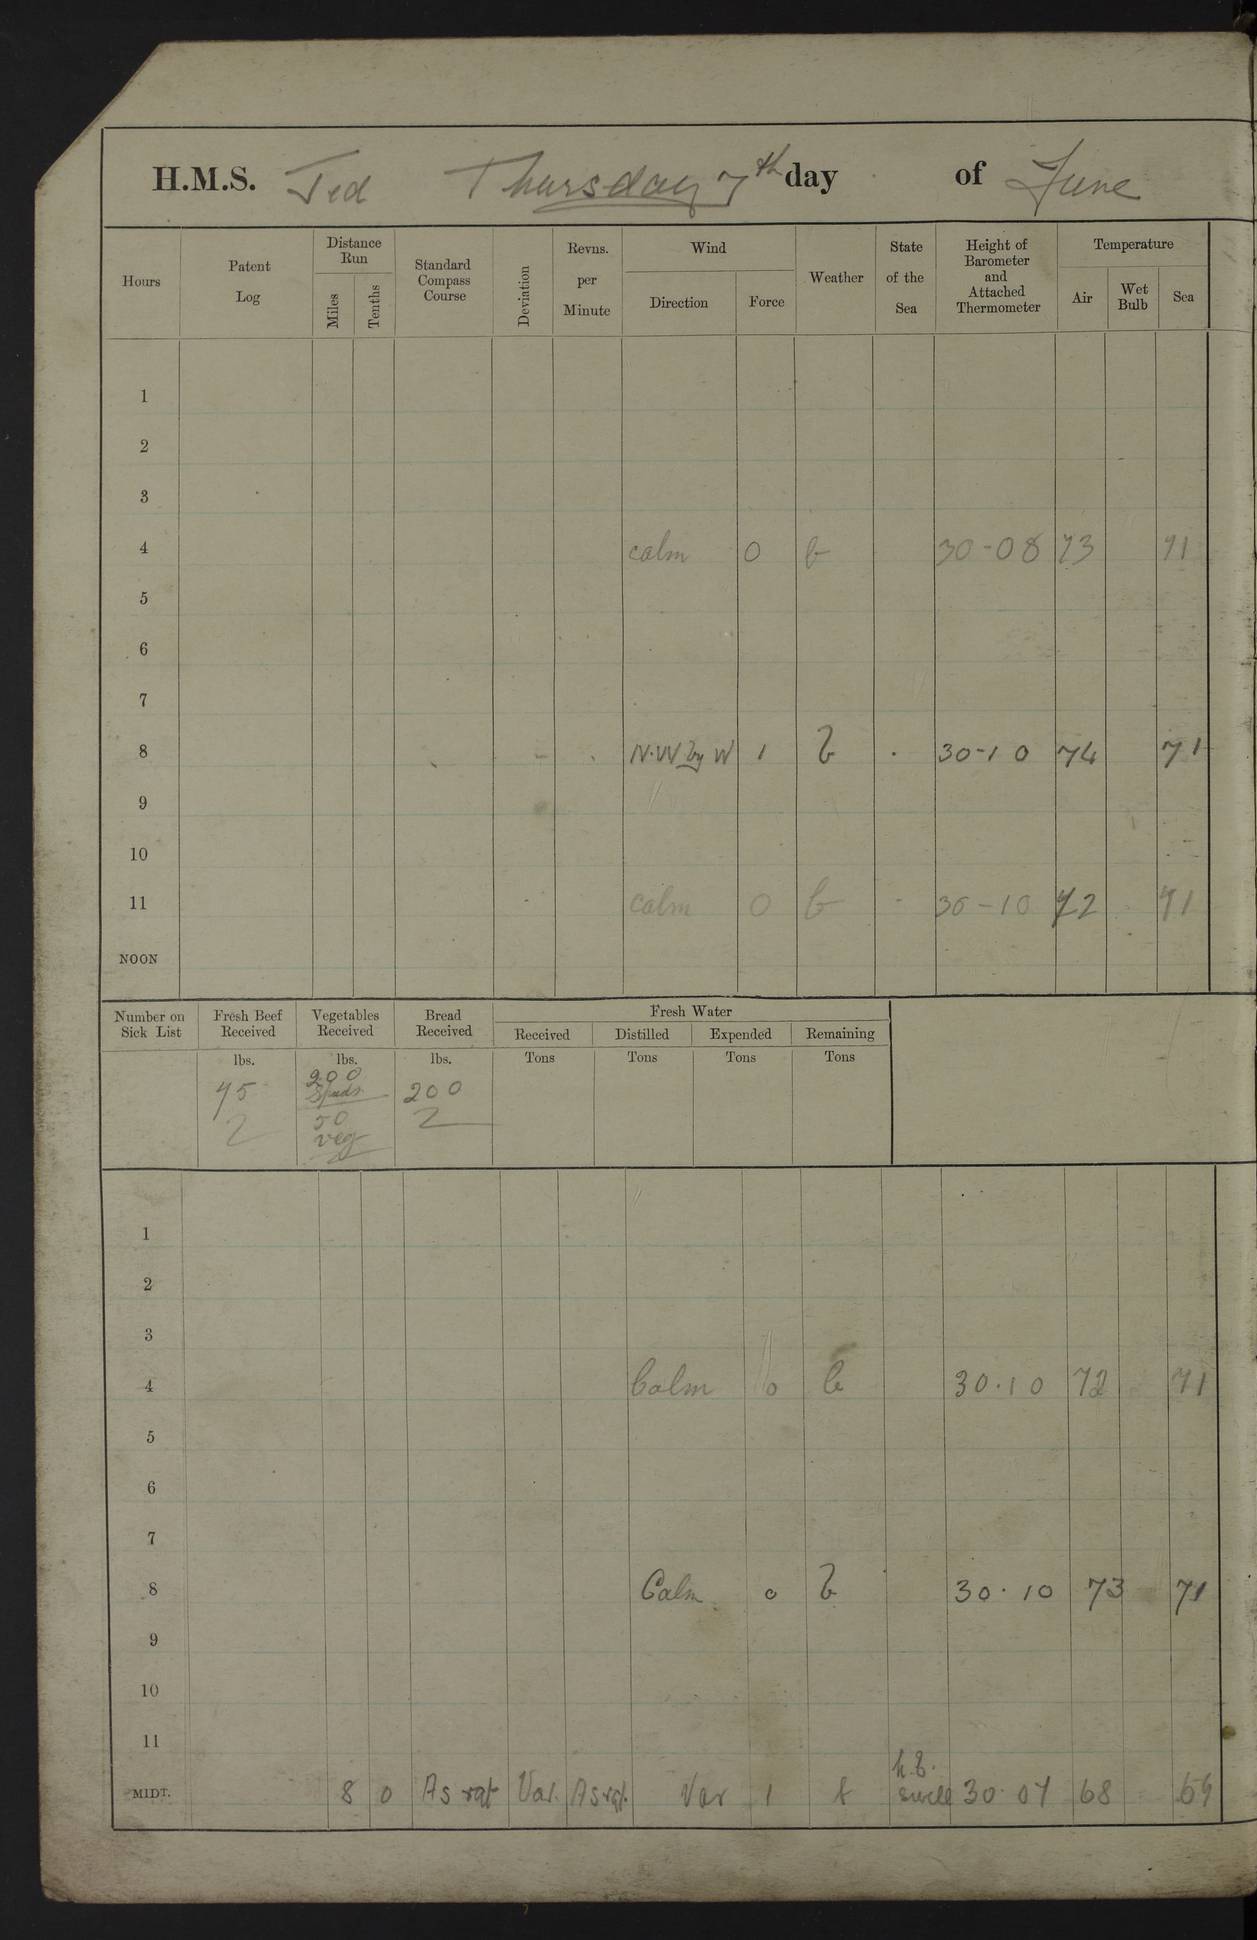 H.M.S. Ted Thursday 7th day of June
Hours Patent Log Distance Run Miles Tenths Standard Compass Course Deviation Revns. per Minute Wind Direction Force Weather State of the Sea Height of Barometer and Attached Thermometer Temperature Air Wet Bulb Sea
1
2
3
4 calm 0 b 30-08 73 71
5
6
7
8 N.W by W 1 b 30-10 74 71
9
10
11 calm 0 b 30-10 72 71
NOON
Number on Sick List Fresh Beef Received Vegetables Received Bread Received Fresh Water
Received Distilled Expended Remaining
lbs. lbs. lbs. Tons Tons Tons Tons
200
75 Spuds 200
50
veg
1
2
3
4 Calm 0 b 30.10 72 71
5
6
7
8 Calm 0 b 30.10 73 71
9
10
11
MIDT. 8 0 As req Var. As req. Var 1 swell 30.07 68 69